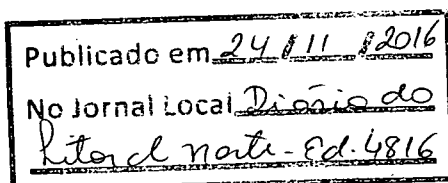 Publicado em 24/11/2016
No Jornal Local Diário do
Litoral norte-Ed.4816